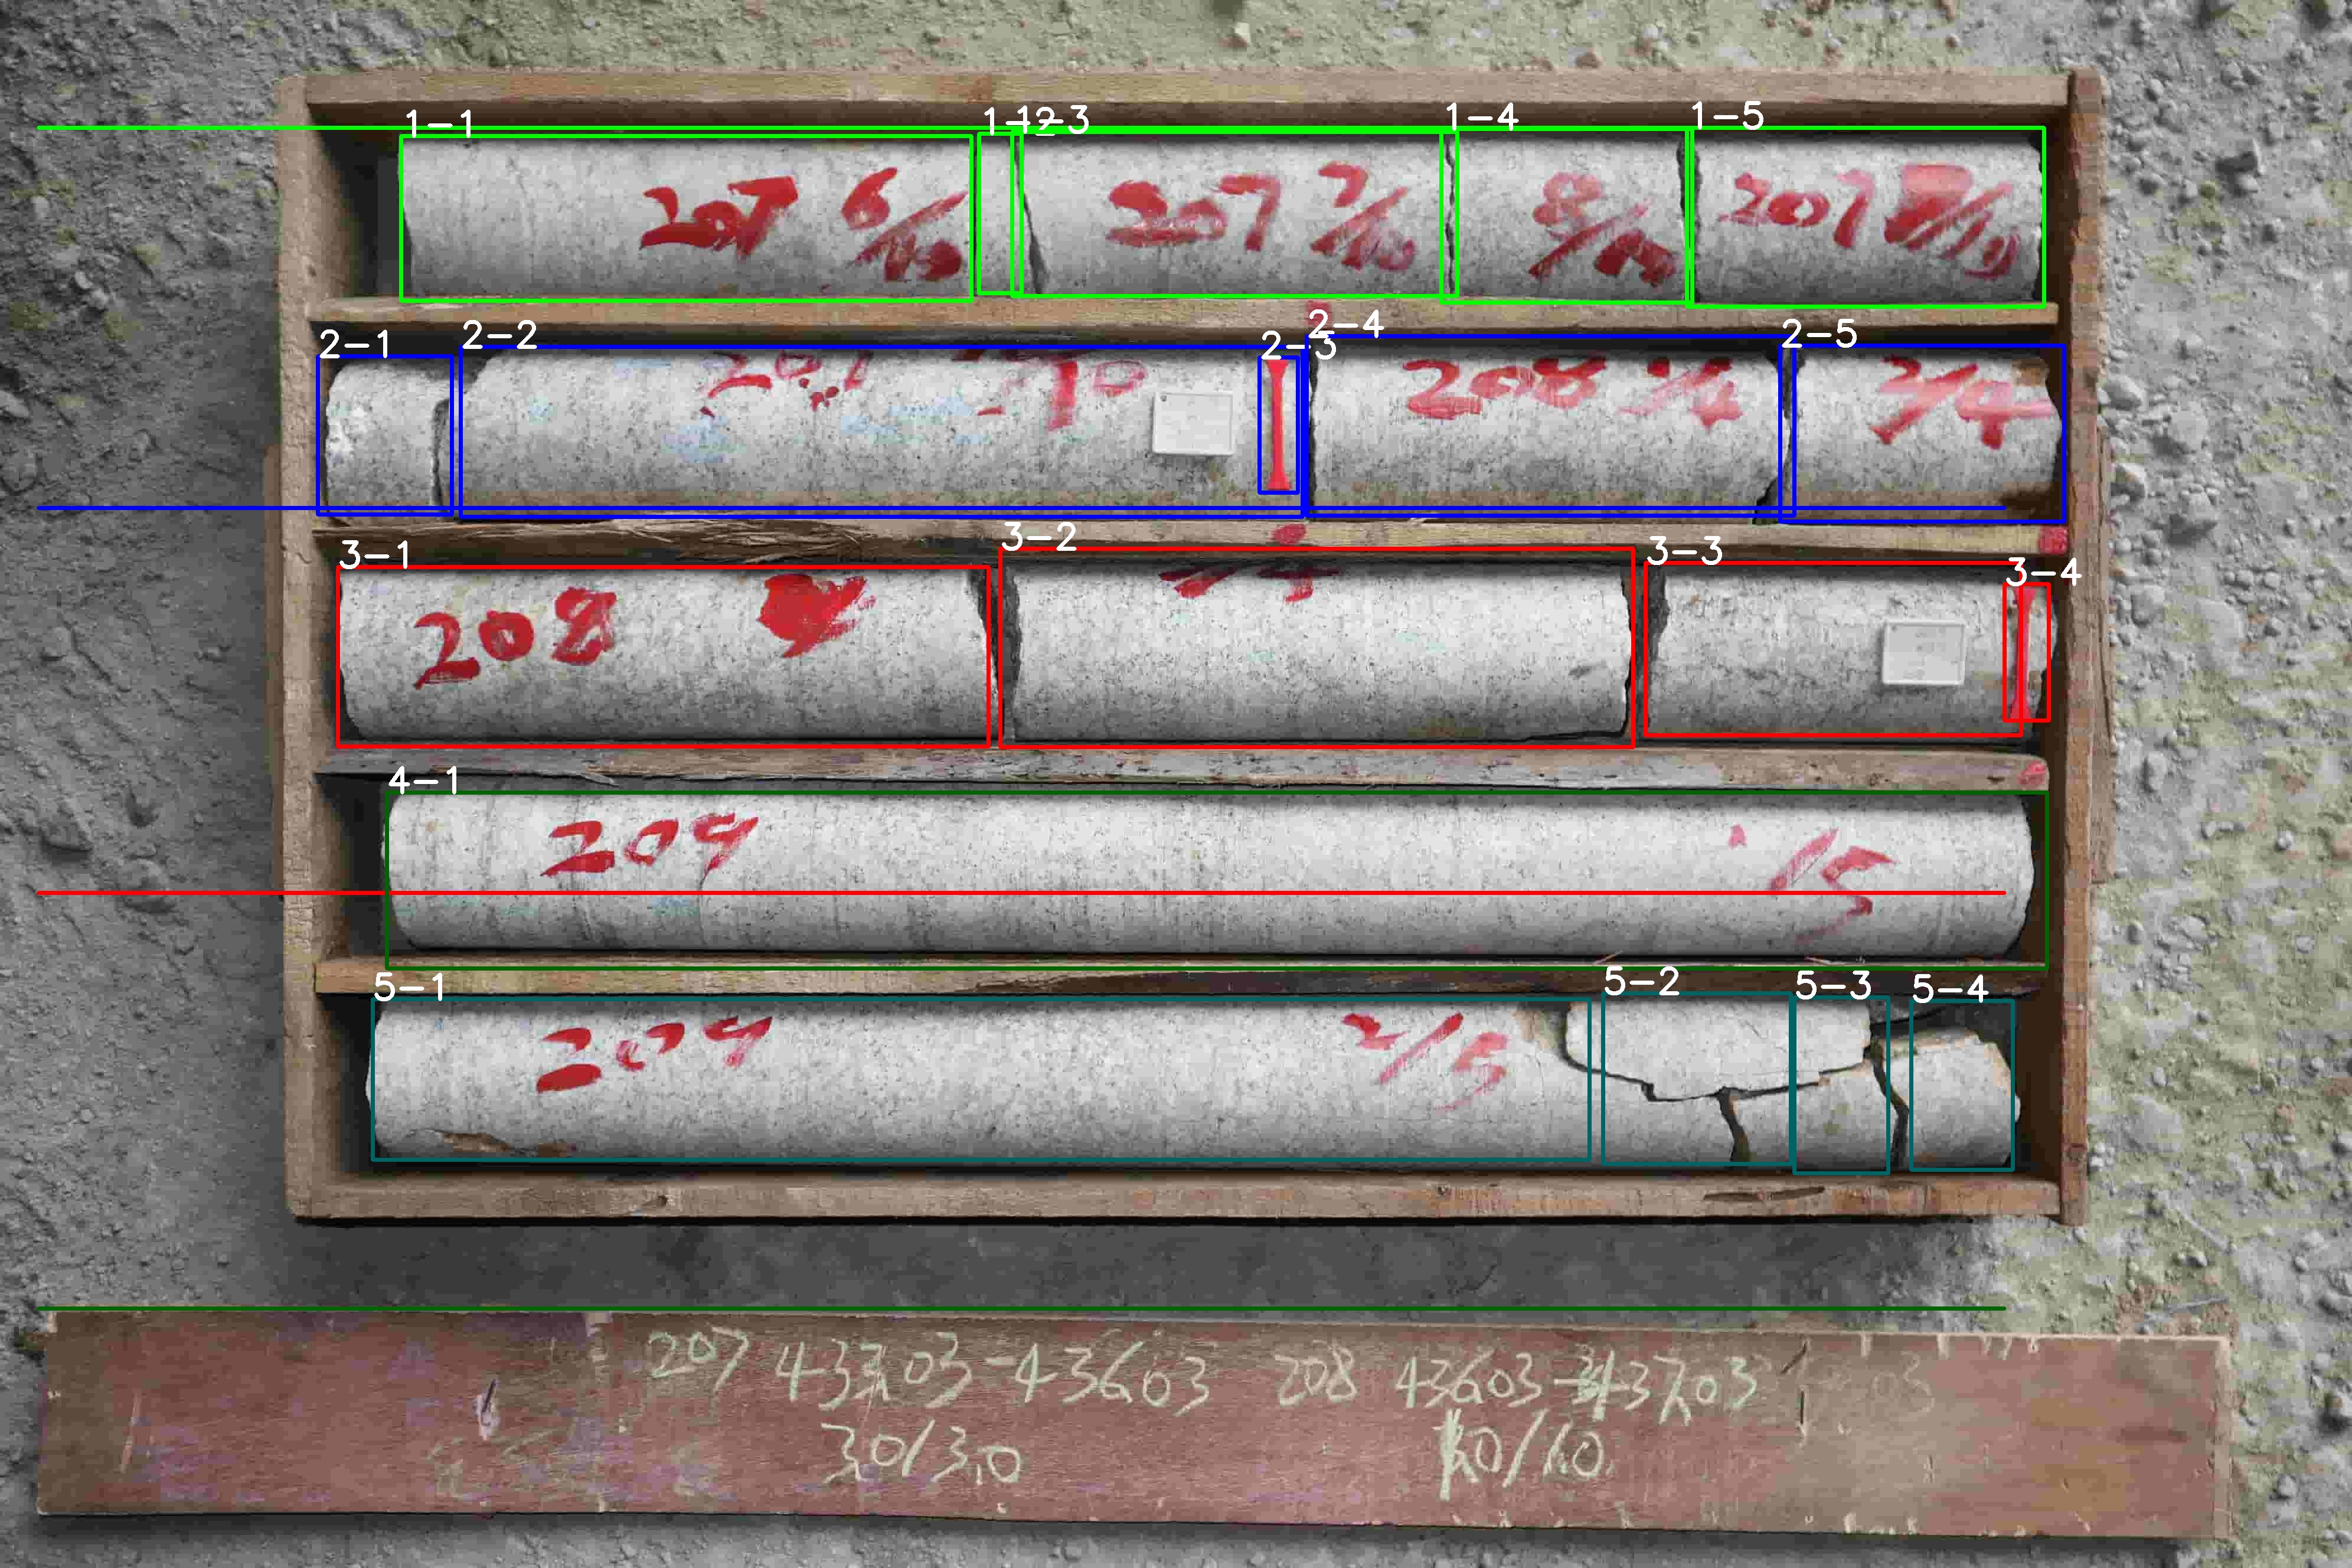 1-1 1-2 1-3 1-4 1-5
207 6/10 207 7/10 8/10 207
2-1 2-2 2-3 2-4 2-5
207 208 1/4 2/4
3-1 3-2 3-3 3-4
208
4-1
209 1/5
5-1 5-2 5-3 5-4
209 2/5
207 433.03-436.03 208 436.03-437.03
3.0/3.0 1.0/1.0